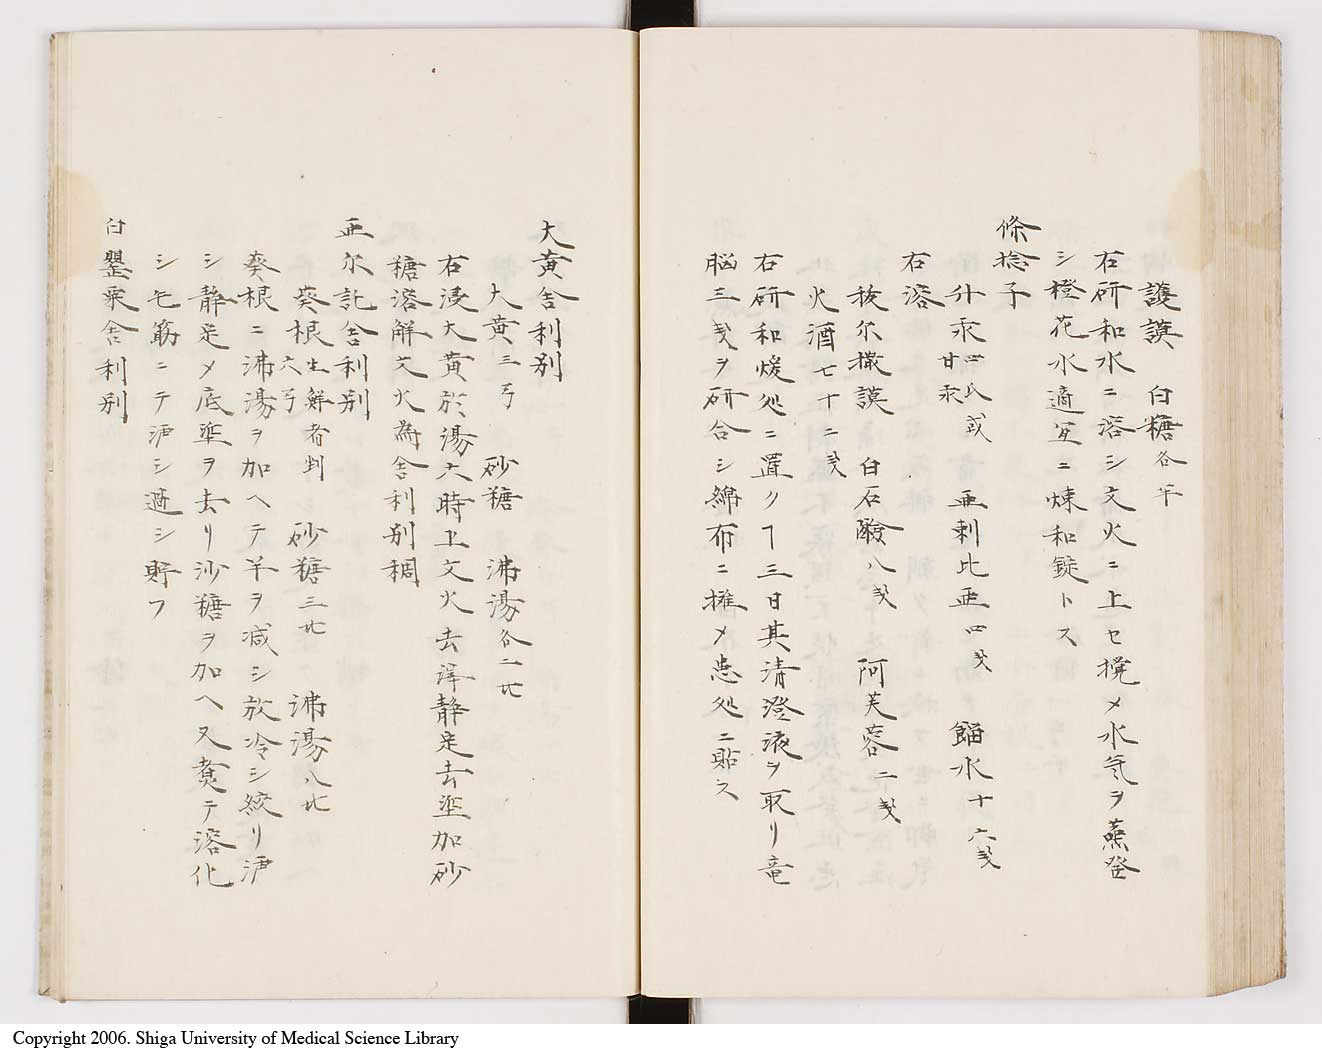 護謨 白糖各半
右研和水ニ溶シ文火ニ上セ撹メ水気ヲ蒸登
シ橙花水適宜ニ煉和錠トス
條捻子
升汞四氏或甘汞 亜剌比亜四戔 餾水十六戔
右溶
拔尓撒謨 白石酸八戔 阿芙蓉二戔
火酒七十二戔
右研和煖処ニ置クヿ三日其清澄液ヲ取リ竜
脳三戔ヲ研合シ綿布ニ攤メ患処ニ貼ス
大黄舎利別
大黄三弓 砂糖 沸湯各二
右浸大黄於湯六時上文火去滓静定去 加砂
糖溶解文火為舎利別稠
亜尓託舎利別
葵根生鮮者判六弓 砂糖三 沸湯八
葵根ニ沸湯ヲ加ヘテ半ヲ減シ放冷シ絞リ
シ静定メ底 ヲ去リ沙糖ヲ加ヘ又煮テ溶化
シ 筋ニテ シ過シ貯フ
白罌粟舎利別
Copyright 2006. Shiga University of Medical Science Library